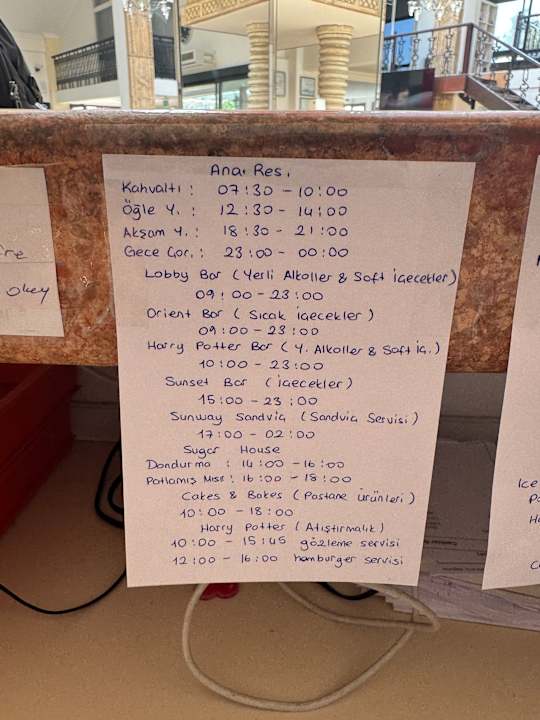 Ana. Res.
Kahvaltı : 07:30 - 10:00
Öğle Y. : 12:30 - 14:00
Akşam Y. : 18:30 - 21:00
Gece Çor. : 23:00 - 00:00
Lobby Bar (Yerli Alkoller & Soft içecekler)
09:00 - 23:00
Orient Bar (Sıcak içecekler)
09:00 - 23:00
Harry Potter Bar (Y. Alkoller & Soft iç.)
10:00 - 23:00
Sunset Bar (içecekler)
15:00 - 23:00
Sunway Sandviç (Sandviç Servisi)
17:00 - 02:00
Sugar House
Dondurma : 14:00 - 16:00
Patlamış Mısır : 16:00 - 18:00
Cakes & Bakes (Pastane Ürünleri)
10:00 - 18:00
Harry Potter (Atıştırmalık)
10:00 - 15:45 gözleme servisi
12:00 - 16:00 hamburger servisi
okey